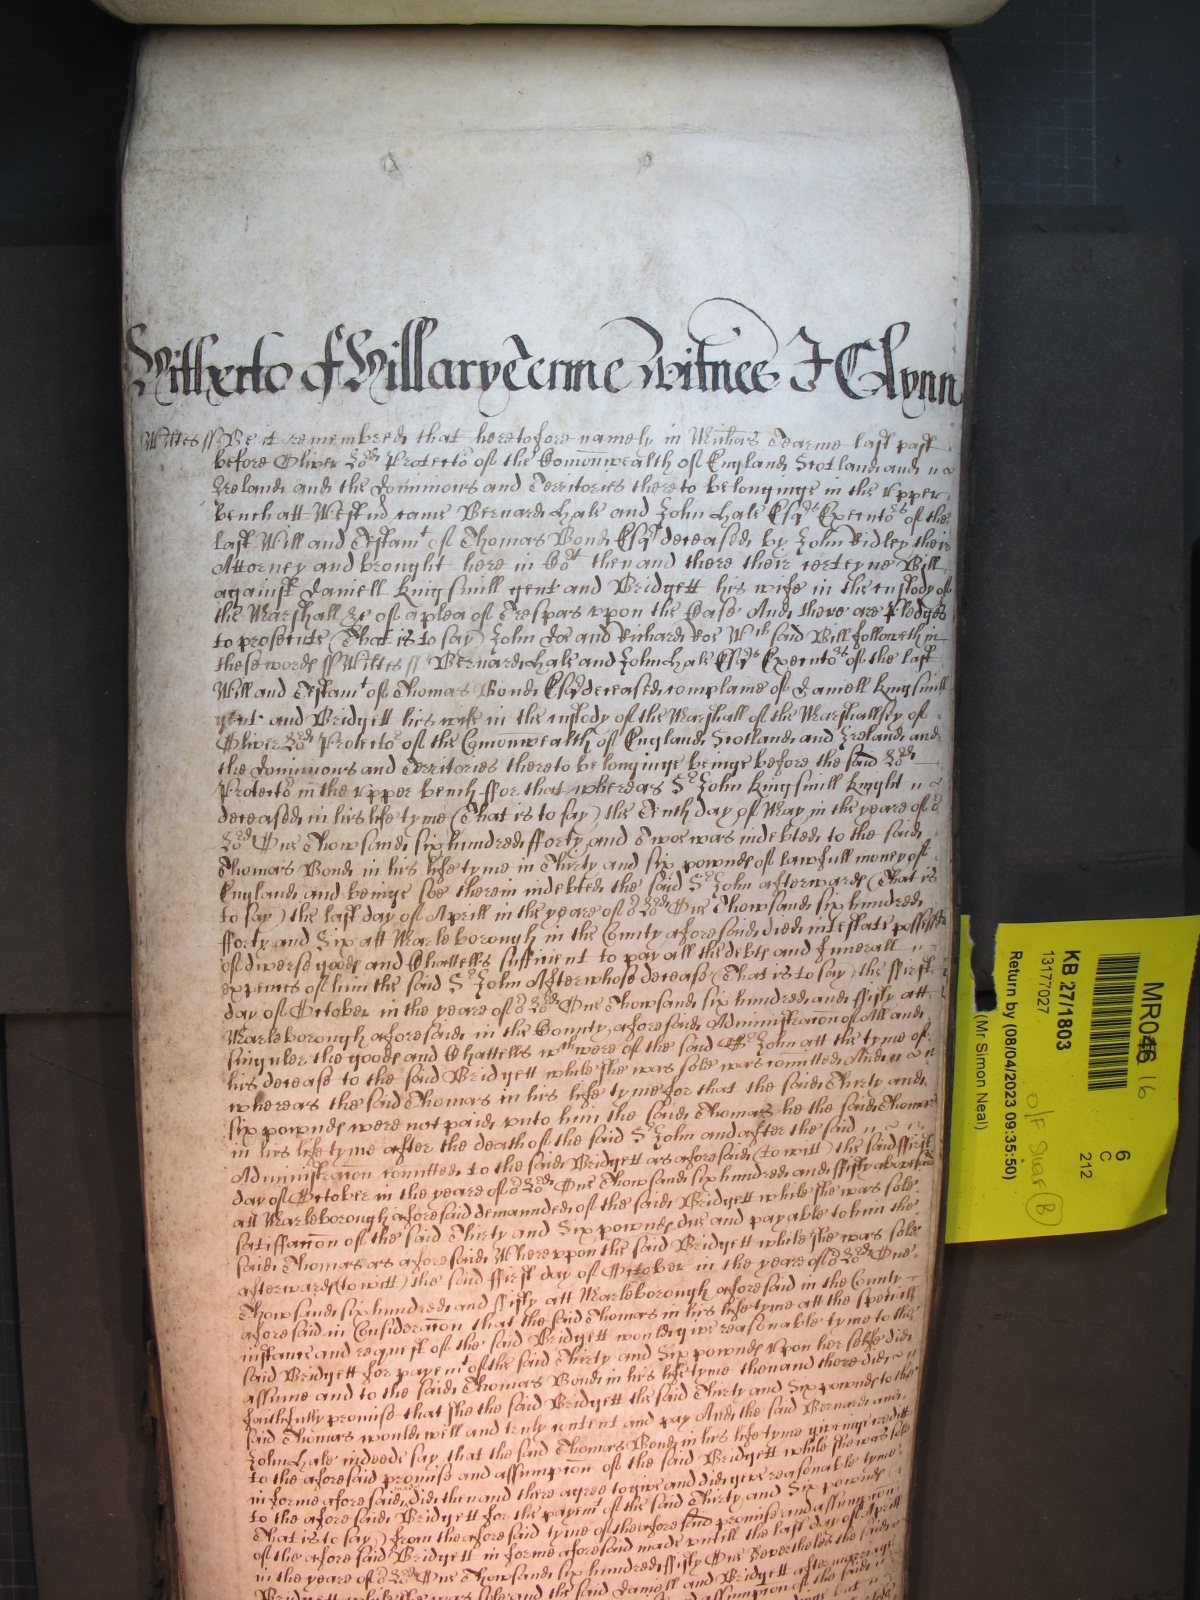 Hitherto of Hillary Terme Witnes J Glynn
Wiltes ss Be it remembred that heretofore namely in Michas Tearme last past
before Oliver Lord Protector of the Comonwealth of England Scotland and
Ireland and the Dominions and Territories thereto belonginge in the Upper
bench att Westmr came Bernard Hale and John Hale Esqrs Executors of the
last Will and Testamt of Thomas Bond Esqr deceased by John Ridley their
Attorney and brought here in Cort then and there their certeyne Bill
against Daniell Kingsmill gent and Bridgett his wife in the custody of
the Marshall &c of a plea of Trespas upon the Case And there are Pledges
to prosecute (That is to say) John Doe and Richard Roe Wch said Bill followeth in
these words ss Wiltes ss Bernard Hale and John Hale Esqrs Executors of the last
Will and Testamt of Thomas Bond Esqr deceased complaine of Daniell Kingsmill
gent and Bridgett his wife in the custody of the Marshall of the Marshallsey of
Oliver Lord Protector of the Comonwealth of England Scotland and Ireland and
the Dominions and Territories thereto belonginge beinge before the said Lord
Protector in the Upper bench ffor that whereas Sr John Kingsmill Knight
deceased in his life tyme (That is to say) the Tenth day of May in the yeare of or
Lord One Thowsand six hundred fforty and Twoe was indebted to the said
Thomas Bond in his life tyme in Thirty and six pownds of lawfull money of
England and beinge soe therein indebted the said Sr John afterwards (That is
to say) the last day of Aprill in the yeare of or Lord One Thowsand six hundred
fforty and Six att Marleborough in the County aforesaid died intestate possessed
of diverse goods and Chattells sufficient to pay all the debts and funerall
expences of him the said Sr John After whose decease (That is to say) the ffirst
day of October in the yeare of or Lord One Thowsand six hundred and ffifty att
Marleborough aforesaid in the County aforesaid Administracon of All and
singuler the goods and Chattells wch were of the said Sr John att the tyme of
his decease to the said Bridgett while she was sole was comitted And
whereas the said Thomas in his life tyme for that the said Thirty and
six pownds were not paid unto him the said Thomas he the said Thomas
in his life tyme after the death of the said Sr John and after the said
Administracon comitted to the said Bridgett as aforesaid (to witt) the said ffirst
day of October in the yeare of or Lord One Thowsand six hundred and ffifty abovesaid
att Marleborough aforesaid demaunded of the said Bridgett while she was sole
satisfaccon of the said Thirty and Six pownds due and payable to him the
said Thomas as aforesaid Whereupon the said Bridgett while she was sole
afterwards (to witt) the said ffirst day of October in the yeare of or Lord One
Thowsand six hundred and ffifty att Marleborough aforesaid in the County
aforesaid in Consideracon that the said Thomas in his life tyme att the speciall
instance and request of the said Bridgett would give reasonable tyme to the
said Bridgett for paymt of the said Thirty and Six pownds Upon her selfe did
assume and to the said Thomas Bond in his life tyme then and there did
faithfully promise that she the said Bridgett the said Thirty and Six pownds to the
said Thomas would well and truly content and pay And the said Bernard and
John Hale indeede say that the said Thomas Bond in his life tyme givinge creditt
to the aforesaid promise and assumpcon of the said Bridgett while she was sole
in forme aforesaid did then and there agree to give and did give reasonable tyme
to the aforesaid Bridgett for the paymt of the said Thirty and Six pownds
That is to say) from the aforesaid tyme of the aforesaid promise and assumpcon
of the aforesaid Bridgett in forme aforesaid made untill the last day of Aprill
in the yeare of or Lord One Thowsand six hundred ffifty One Neverthelesse the said
Bridgett while she was sole and the said Daniell and Bridgett after marriage
MR046 16
KB 27/1803
13177027
Return by (08/04/2023 09:35:50)
(Mr Simon Neal)
6
C
212
O/F Shelf B